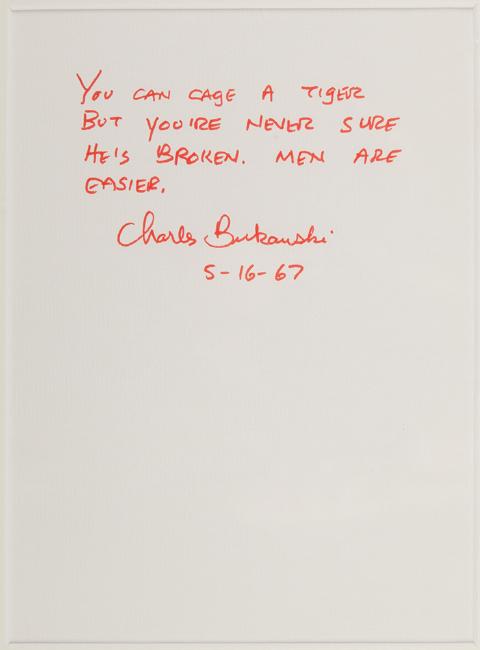 YOU CAN CAGE A TIGER
BUT YOU'RE NEVER SURE
HE'S BROKEN. MEN ARE
EASIER.
Charles Bukowski
5-16-67